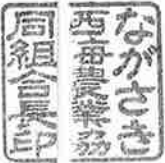 ながさき
西海農業協
同組合長印